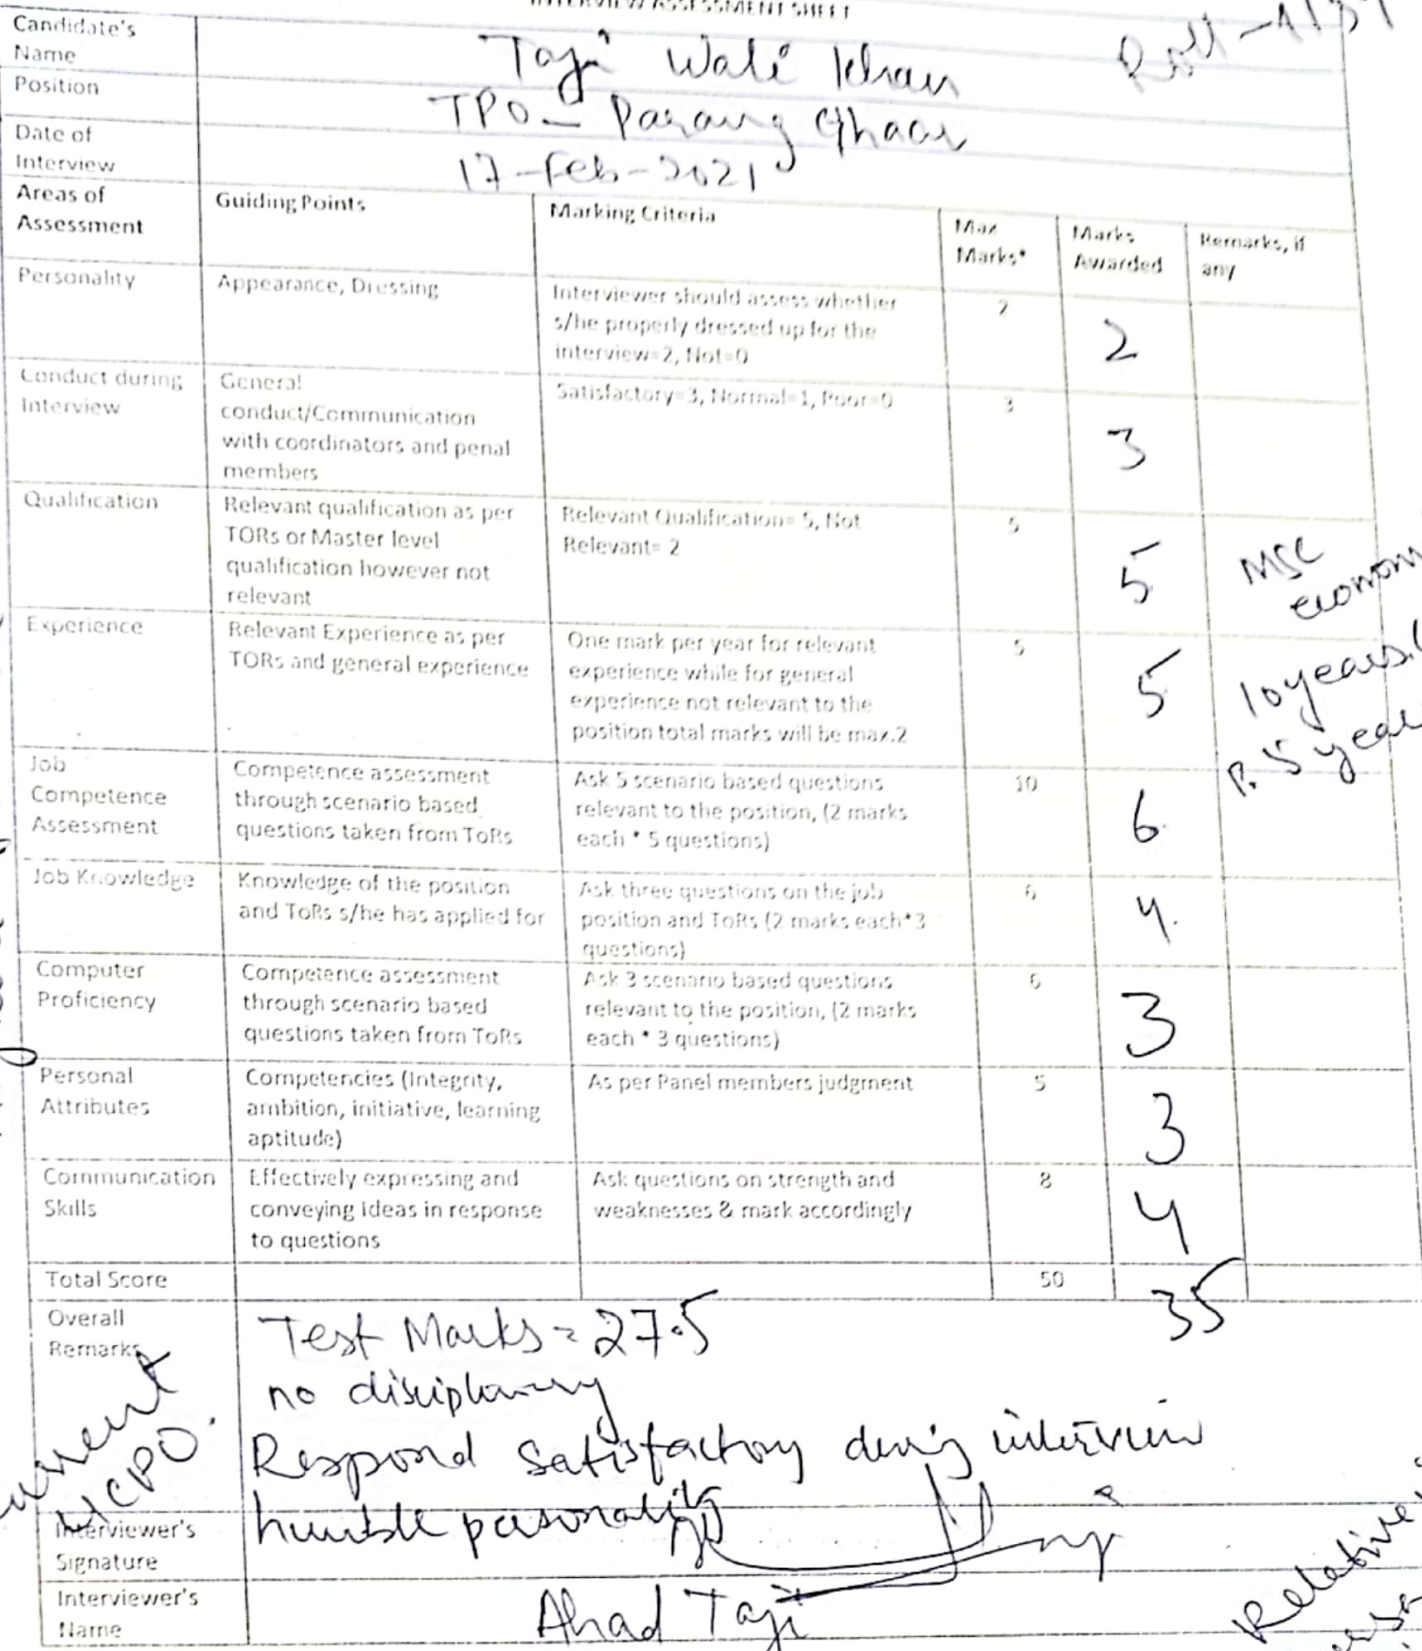 INTERVIEW ASSESSMENT SHEET
Candidate's Name Taji Wali Khan
Position TPO - Parang Ghaar
Date of Interview 17-Feb-2021
Areas of Assessment Guiding Points Marking Criteria Max Marks* Marks Awarded Remarks, if any
Personality Appearance, Dressing Interviewer should assess whether s/he properly dressed up for the interview=2, Not=0 2 2
Conduct during Interview General conduct/Communication with coordinators and penal members Satisfactory=3, Normal=1, Poor=0 3 3
Qualification Relevant qualification as per TORs or Master level qualification however not relevant Relevant Qualification= 5, Not Relevant= 2 5 5 MSC
Experience Relevant Experience as per TORs and general experience One mark per year for relevant experience while for general experience not relevant to the position total marks will be max.2 5 5 10 years
5 year
Job Competence Assessment Competence assessment through scenario based questions taken from ToRs Ask 5 scenario based questions relevant to the position, (2 marks each * 5 questions) 10 6
Job Knowledge Knowledge of the position and ToRs s/he has applied for Ask three questions on the job position and ToRs (2 marks each*3 questions) 6 4
Computer Proficiency Competence assessment through scenario based questions taken from ToRs Ask 3 scenario based questions relevant to the position, (2 marks each * 3 questions) 6 3
Personal Attributes Competencies (Integrity, ambition, initiative, learning aptitude) As per Panel members judgment 5 3
Communication Skills Effectively expressing and conveying ideas in response to questions Ask questions on strength and weaknesses & mark accordingly 8 4
Total Score 50 35
Overall Remarks Test Marks = 27.5
no disciplanary
Respond satisfactory during interview
humble personality
Interviewer's Signature
Interviewer's Name Ahad Taji
Relative